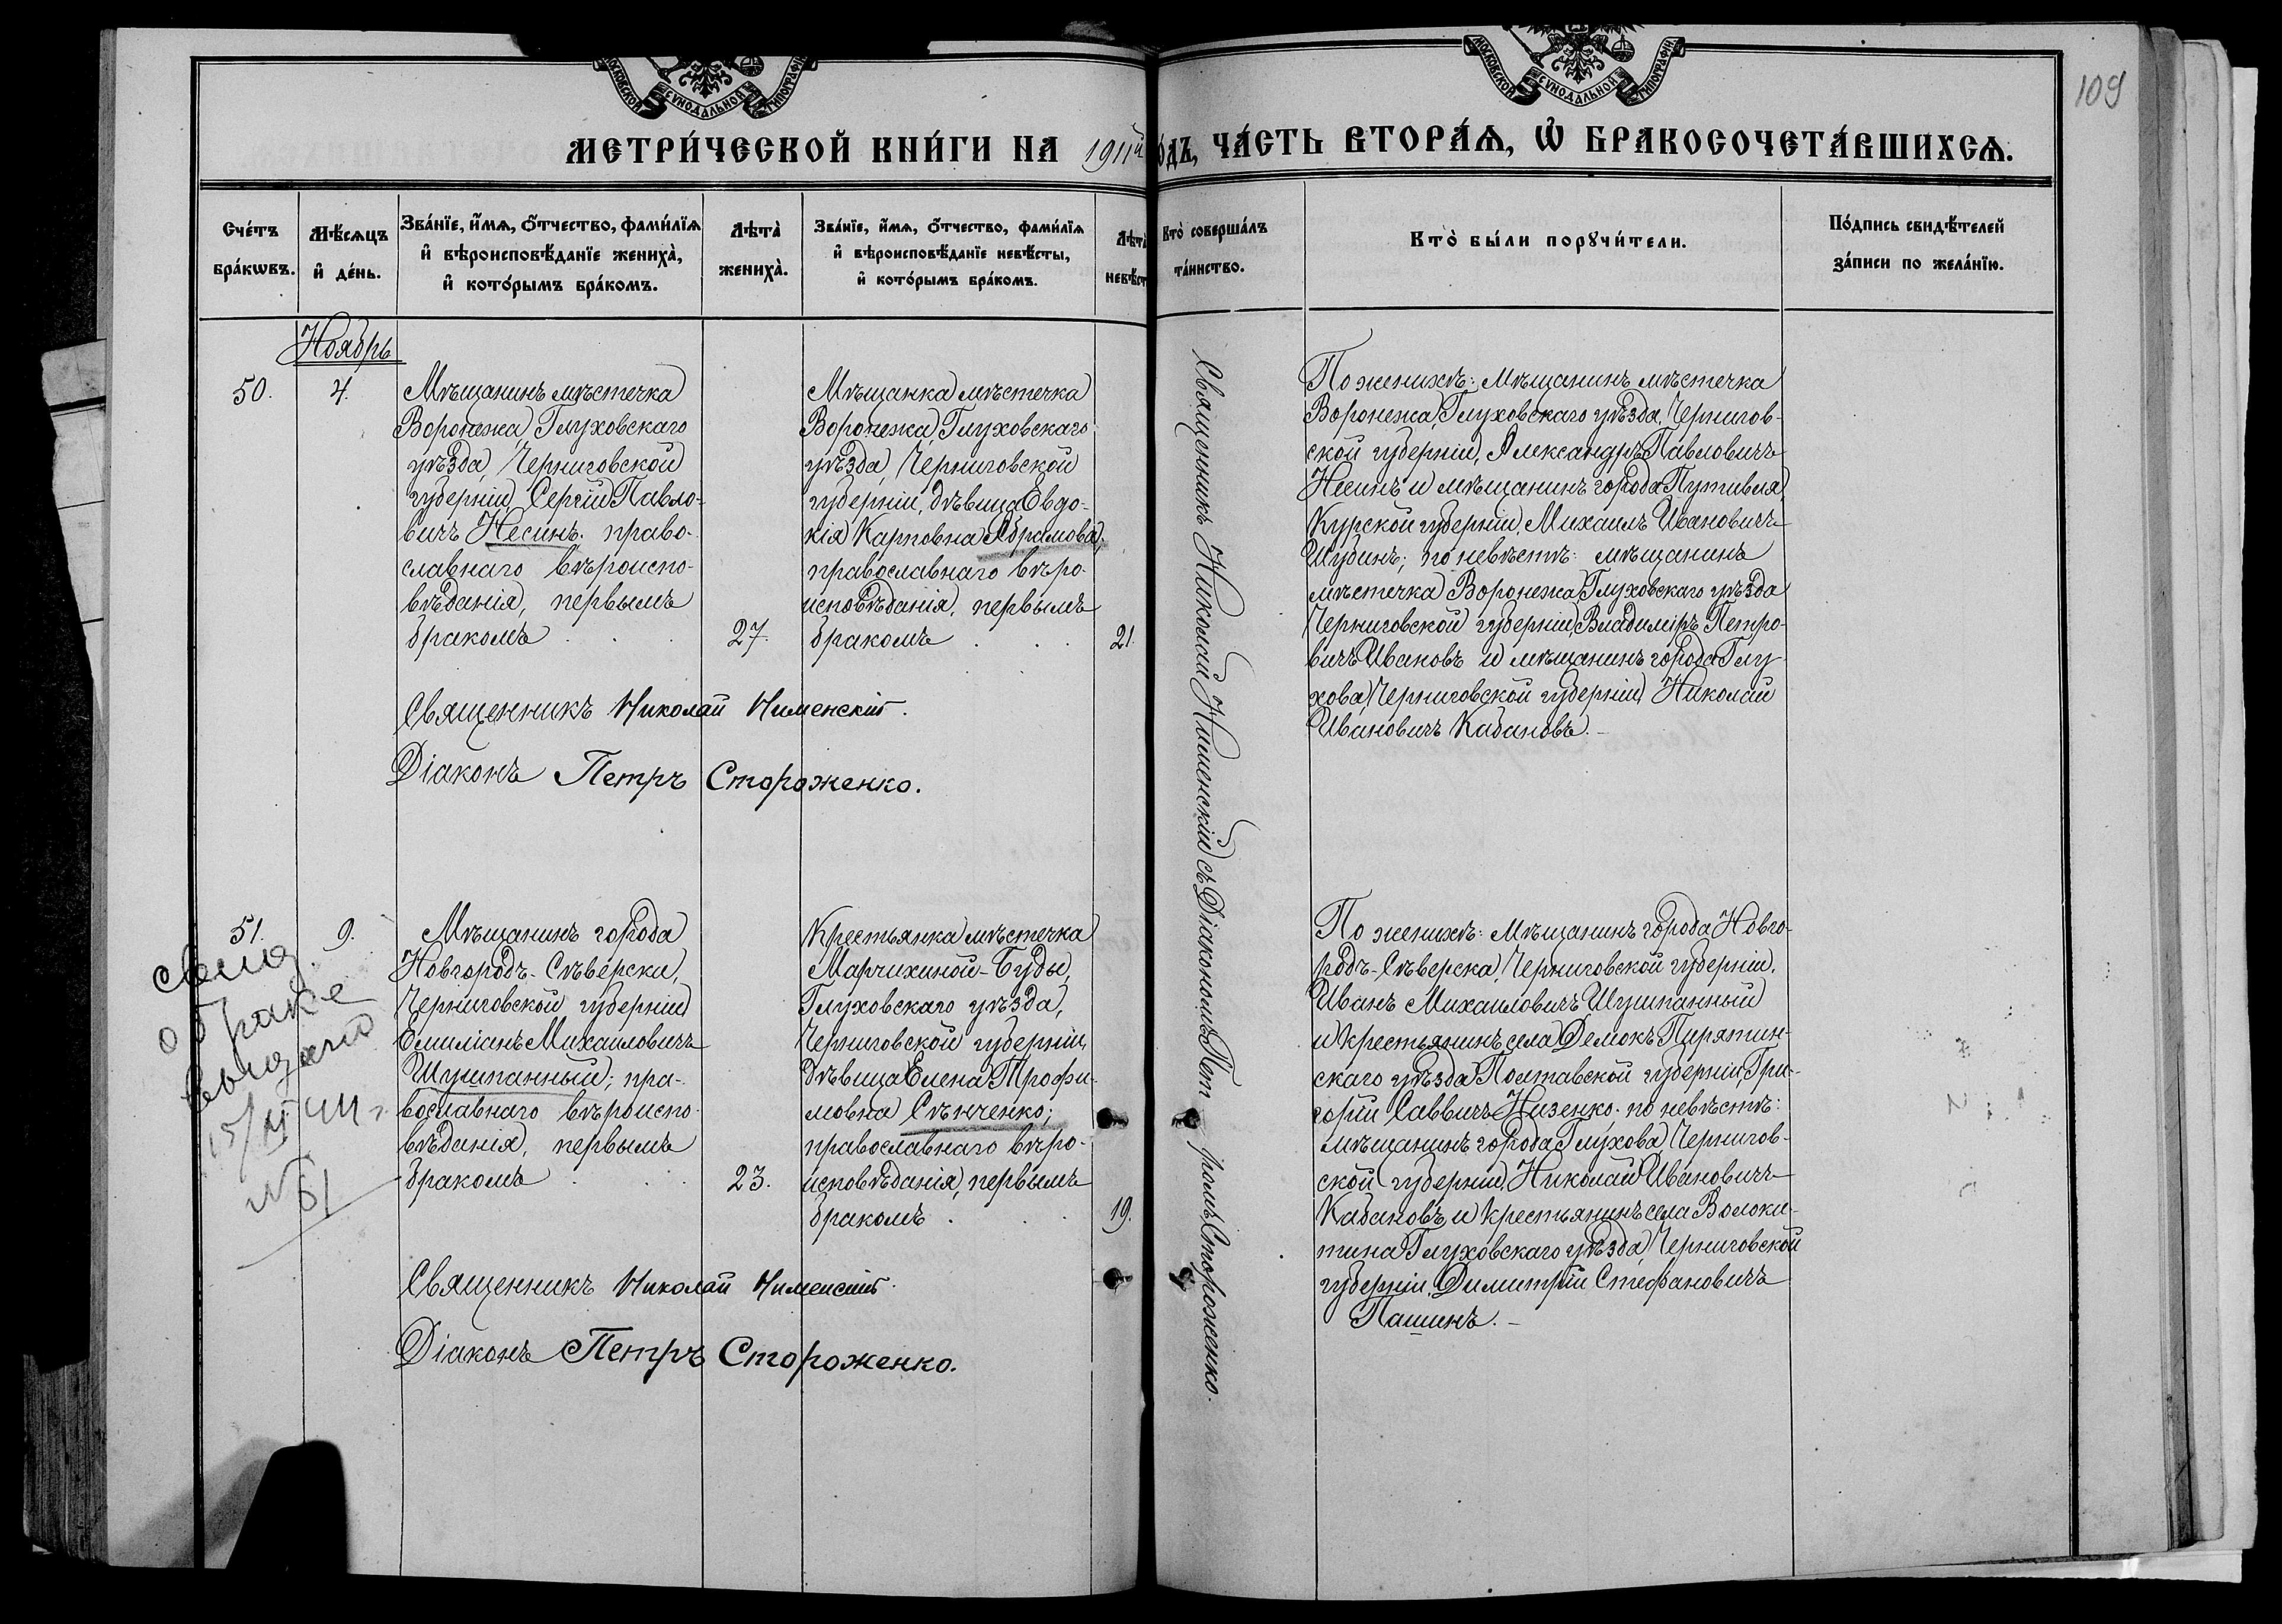 МОСКОВСКОЙ СѴНОДАЛЬНОЙ ТИПОГРАФІИ
МОСКОВСКОЙ СѴНОДАЛЬНОЙ ТИПОГРАФІИ
109
МЕТРИ́ЧЕСКОЙ КНИ́ГИ НА 1911й
ОДЪ, ЧА́СТЬ ВТОРА́Ѧ, Ѡ҆ БРАКОСОЧЕТА́ВШИХСѦ.
Сче́тъ
бра́кѡвъ.
Мѣ́сѧцъ
и҆ де́нь.
Зва́нїе, и҆́мѧ, ѻ҆́тчество, фами́лїѧ
и҆ вѣроисповѣ́данїе женихà,
и҆ кото́рымъ бра́комъ.
Лѣтà
женихà.
Зва́нїе, и҆́мѧ, ѻ҆́тчество, фами́лїѧ
и҆ вѣроисповѣ́данїе невѣ́сты,
и҆ кото́рымъ бра́комъ.
Лѣтà
невѣ́ст
Кто̀ соверша́лъ
та́инство.
Кто̀ бы́ли порꙋчи́тели.
По́дпись свидѣ́телей
за́писи по жела́нїю.
Ноябрь
50.
4.
Мѣщанинъ мѣстечка
Воронежа, Глуховскаго
уѣзда, Черниговской
губерніи, Сергій Павло-
вичъ Несинъ, право-
славнаго вѣроиспо-
вѣданія, первымъ
бракомъ
27.
Мѣщанка мѣстечка
Воронежа, Глуховскаго
уѣзда, Черниговской
губерніи, дѣвица Евдо-
кія Карповна Абрамова,
православнаго вѣро-
исповѣданія, первымъ
бракомъ
21.
Священникъ Николай Нименскій съ Діакономъ Пет ромъ Стороженко.
По женихѣ: Мѣщанинъ мѣстечка
Воронежа, Глуховскаго уѣзда, Чернигов-
ской губерніи, Александръ Павловичъ
Несинъ и мѣщанинъ города Путивля,
Курской губерніи, Михаилъ Ивановичъ
Шубинъ; по невѣстѣ: мѣщанинъ
мѣстечка Воронежа, Глуховскаго уѣзда
Черниговской губерніи, Владиміръ Петро-
вичъ Ивановъ и мѣщанинъ города Глу-
хова, Черниговской губерніи, Николай
Ивановичъ Кабановъ.
Священникъ Николай Нименскій.
Діаконъ Петръ Стороженко.
51.
9.
Мѣщанинъ города
Новгородъ-Сѣверска,
Черниговской губерніи
Емиліанъ Михаиловичъ
Шушпанный; пра-
вославнаго вѣроиспо-
вѣданія, первымъ
бракомъ
23.
Крестьянка мѣстечка
Марчихиной-Буды,
Глуховскаго уѣзда,
Черниговской губерніи,
дѣвица Елена Трофи-
мовна Сѣнченко;
православнаго вѣро-
исповѣданія, первымъ
бракомъ
19.
По женихѣ: Мѣщанинъ города Новго-
родъ-Сѣверска, Черниговской губерніи,
Иванъ Михаиловичъ Шушпанный
и крестьянинъ села Демокъ Пирятин-
скаго уѣзда Полтавской губерніи, Гри-
горій Саввичъ Низенко. по невѣстѣ:
мѣщанинъ города Глухова, Чернигов-
ской губерніи, Николай Ивановичъ
Кабановъ и крестьянинъ села Волоки-
тина Глуховскаго уѣзда, Черниговской
губерніи, Димитрій Стефановичъ
Пашинъ.
о браке
№ 61
Священникъ Николай Нименскій.
Діаконъ Петръ Стороженко.